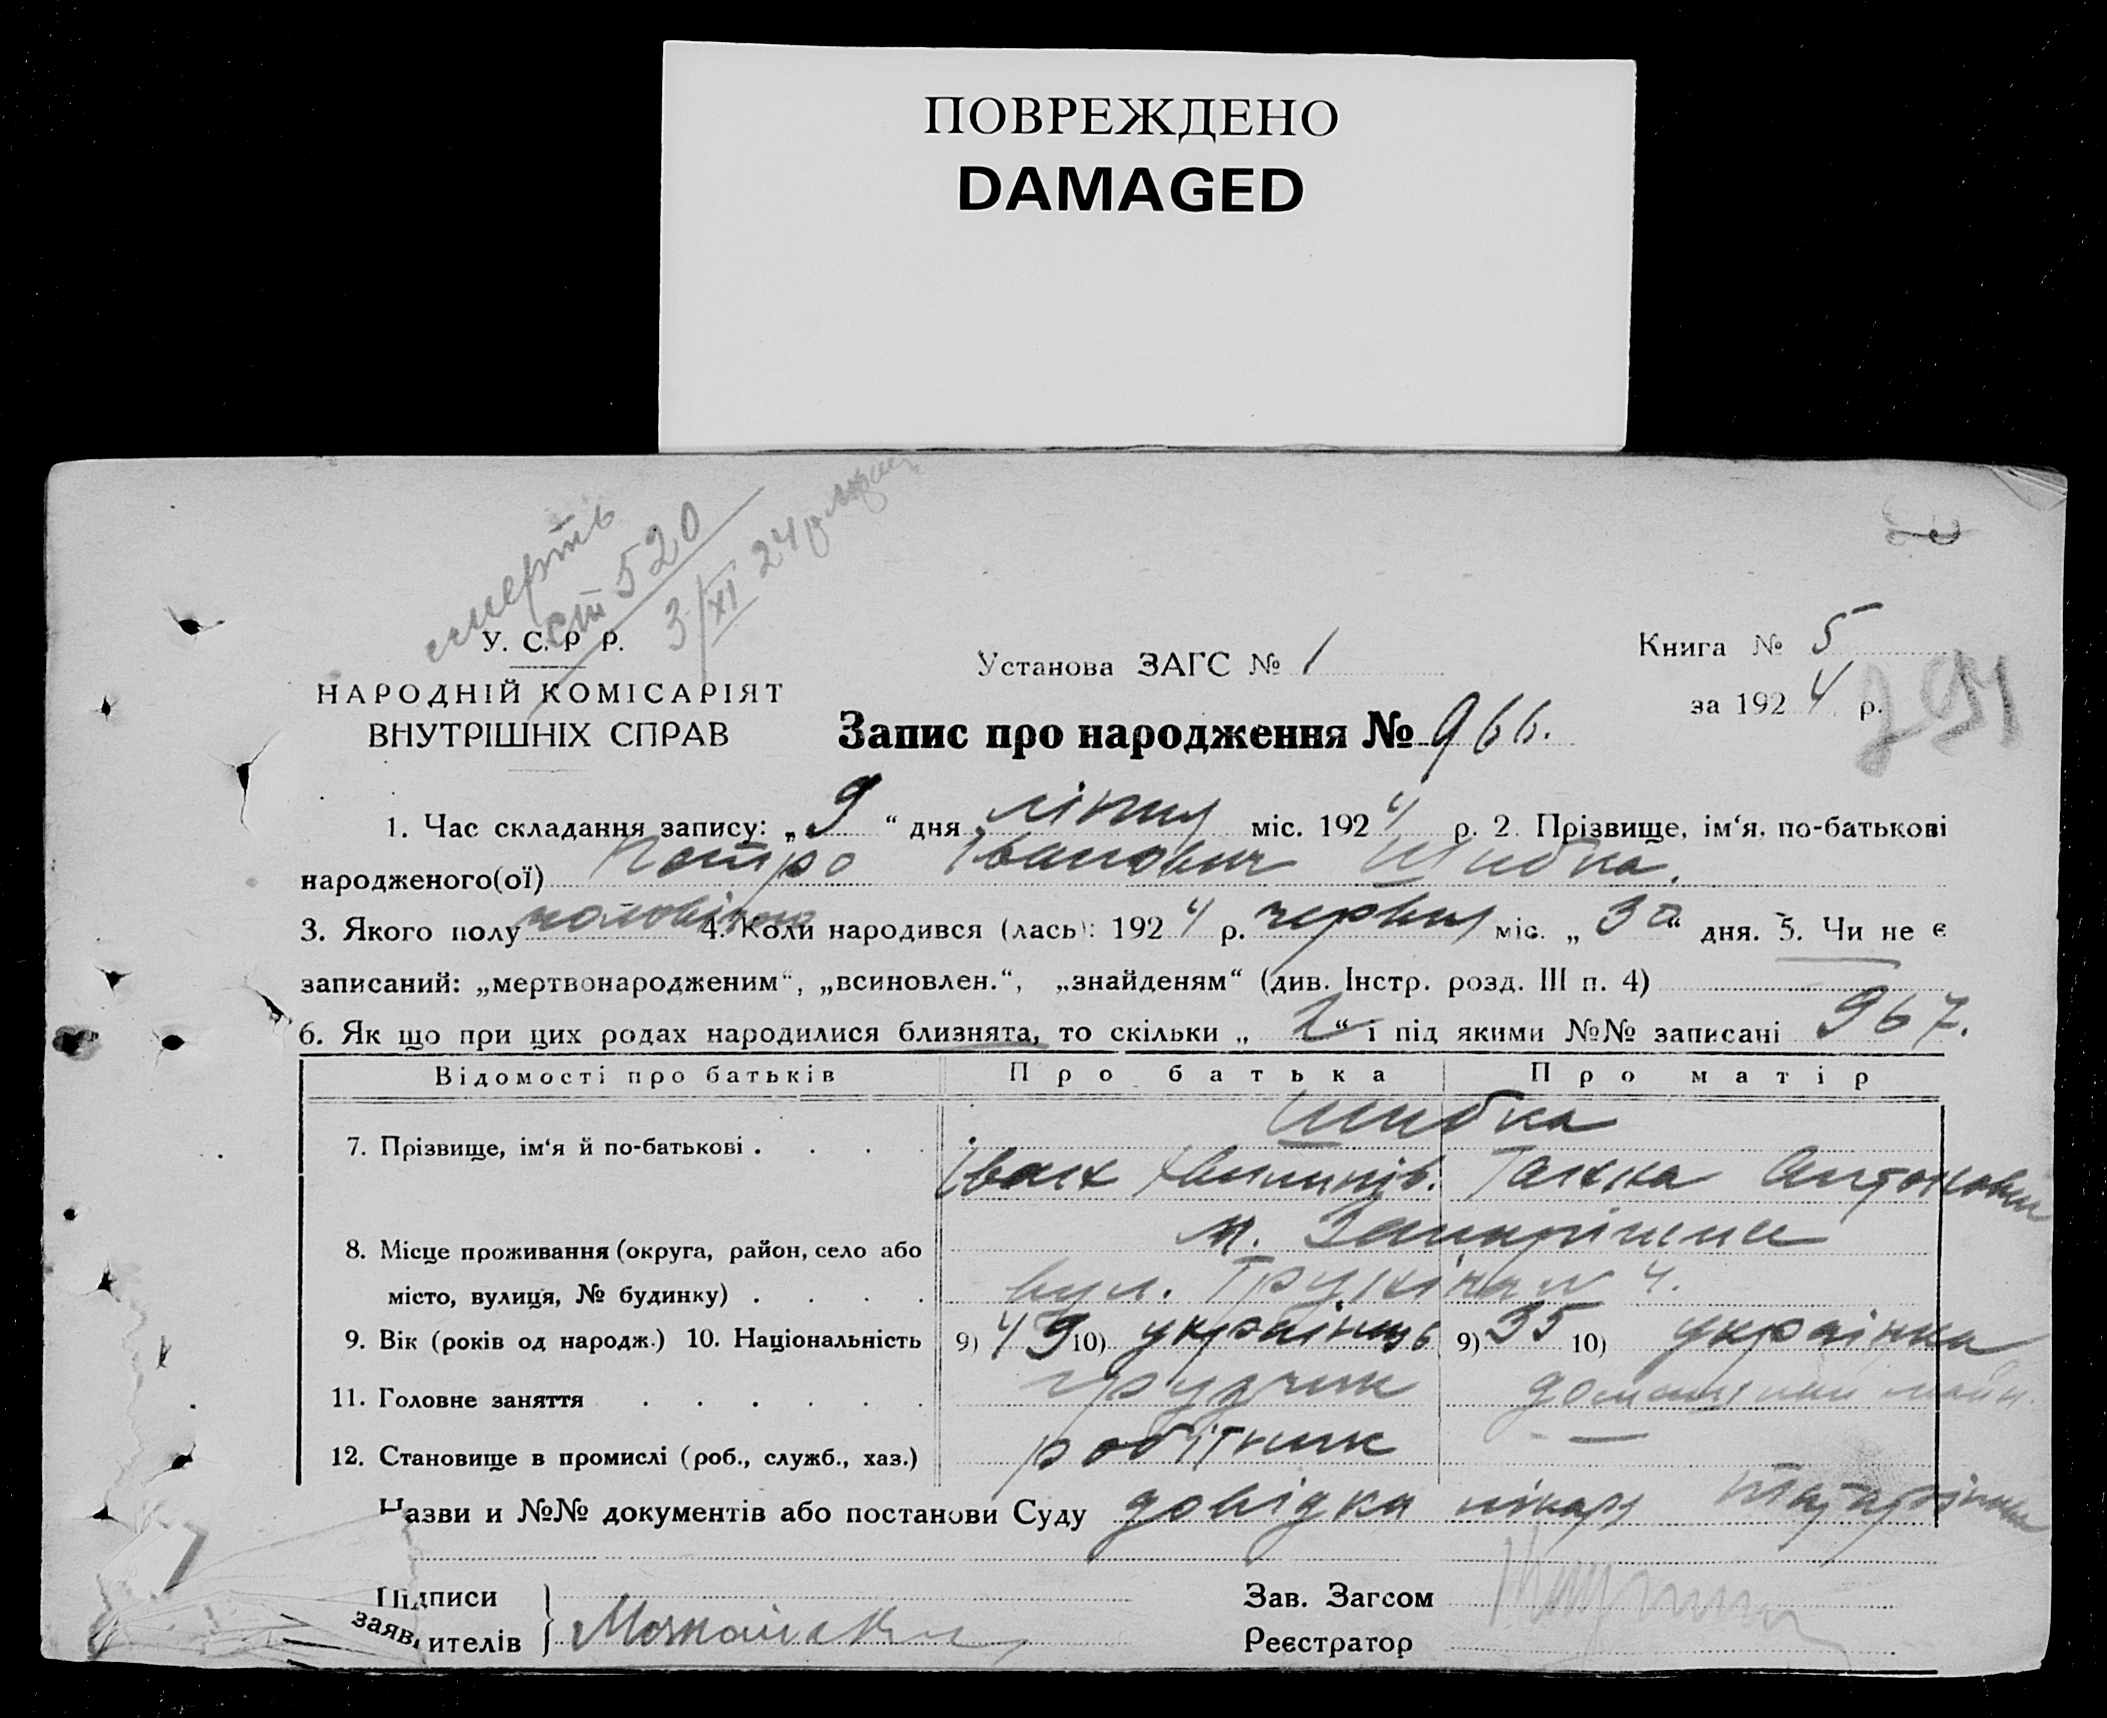 ПОВРЕЖДЕНО
DAMAGED
смерть
ст 520
3/XI 24 р
У. С. Р Р.
НАРОДНІЙ КОМІСАРІЯТ
ВНУТРІШНІХ СПРАВ
Установа ЗАГС № 1
Книга № 5
за 1924 р.
291
Запис про народження № 966.
1. Час складання запису: „9“ дня липня міс. 1924 р. 2. Прізвище, ім‘я, по-батькові
народженого(ої) Петро Іванович Шибка.
3. Якого полу чоловічого 4. Коли народився (лась): 1924 р. червня міс. „30“ дня. 5. Чи не є
записаний: „мертвонародженим“, „всиновлен.“, „знайденям“ (див. Інстр. розд. III п. 4)
6. Як що при цих родах народилися близнята, то скільки „2“ і під якими №№ записані 967.
Відомості про батьків Про батька Про матір
Шибка
7. Прізвище, ім‘я й по-батькові . . . . Іван Пилипів. Ганна Антонов
8. Місце проживання (округа, район, село або м.
місто, вулиця, № будинку) . . . . вул. 4.
9. Вік (років од народж.) 10. Національність 9) 49 10) українець 9) 35 10) українка
11. Головне заняття . . . . . . грузчик
12. Становище в промислі (роб., служб., хаз.) робітник —
Назви и №№ документів або постанови Суду довідка лікаря
Підписи
заявителів
Зав. Загсом
Реєстратор